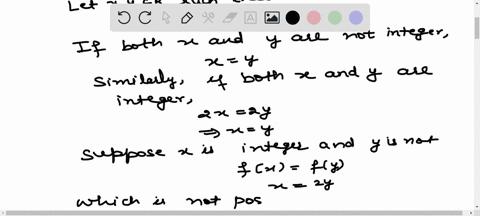 Let x, y ∈ R such
If both x and y are not integer,
x = y
Similarly, if both x and y are
integer,
2x = 2y
⇒ x = y
Suppose x is integer and y is not
f(x) = f(y)
x = 2y
which is not pos